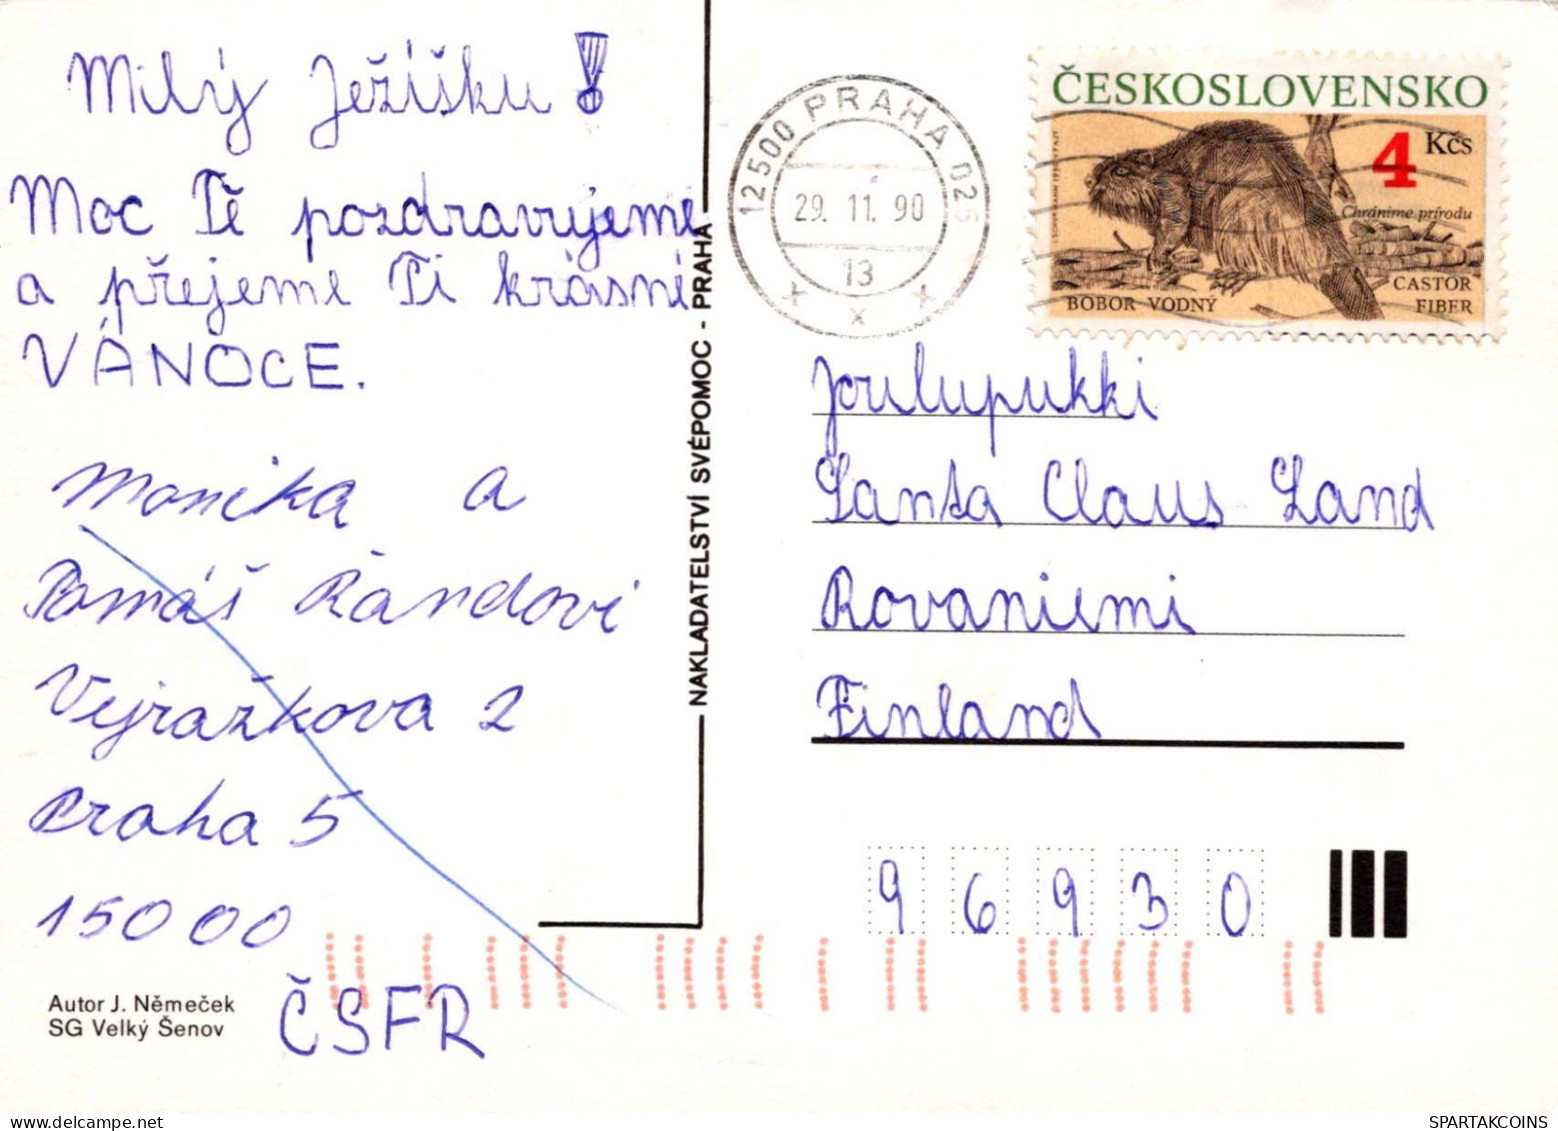 Milý Ježíšku!
Moc Tě pozdravujeme
a přejeme Ti krásné
VÁNOCE.
Monika a
Tomáš Randovi
Vejražkova 2
Praha 5
150 00
ČSFR
Autor J. Němeček
SG Velký Šenov
NAKLADATELSTVÍ SVÉPOMOC - PRAHA
12500 PRAHA 025
29. 11. 90
13
ČESKOSLOVENSKO
4 Kčs
Chráníme prírodu
CASTOR
FIBER
BOBOR VODNÝ
Joulupukki
Santa Claus Land
Rovaniemi
Finland
96930
SPARTAKCOINS